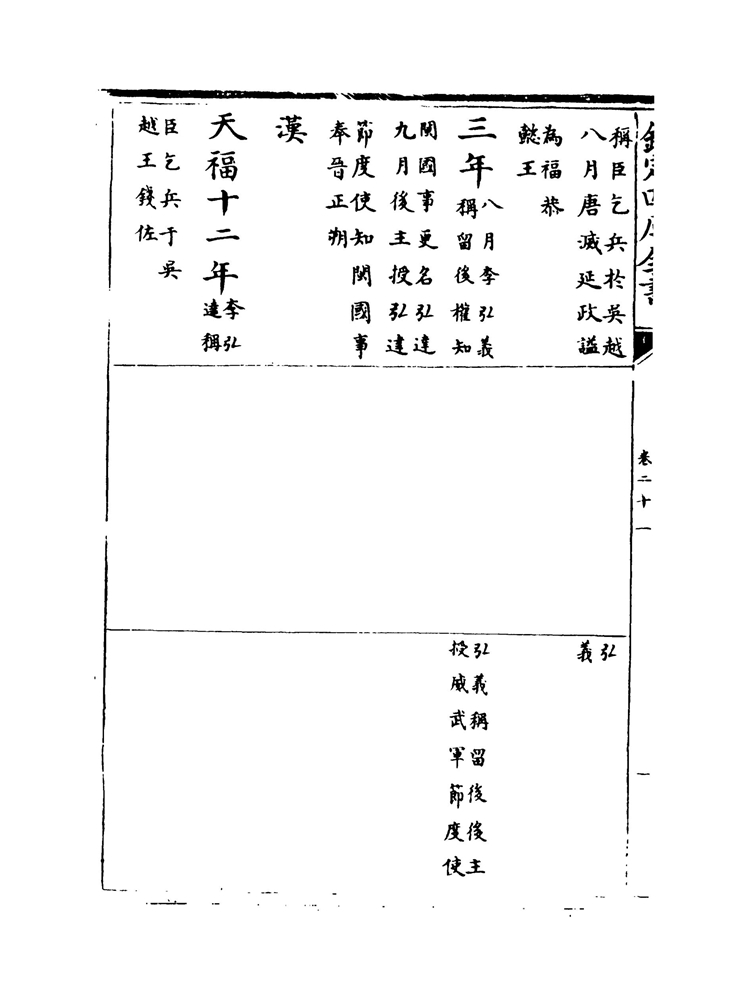 欽定四庫全書
卷二十一
稱臣乞兵於吳越
八月唐滅延政謚
為福恭
懿王
三年
八月李弘義
稱留後權知
閩國事更名弘達
九月後主授弘達
節度使知閩國事
奉晉正朔
漢
天福十二年
李弘
達稱
臣乞兵于吳
越王錢佐
弘
義
弘義稱留後後主
授威武軍節度使